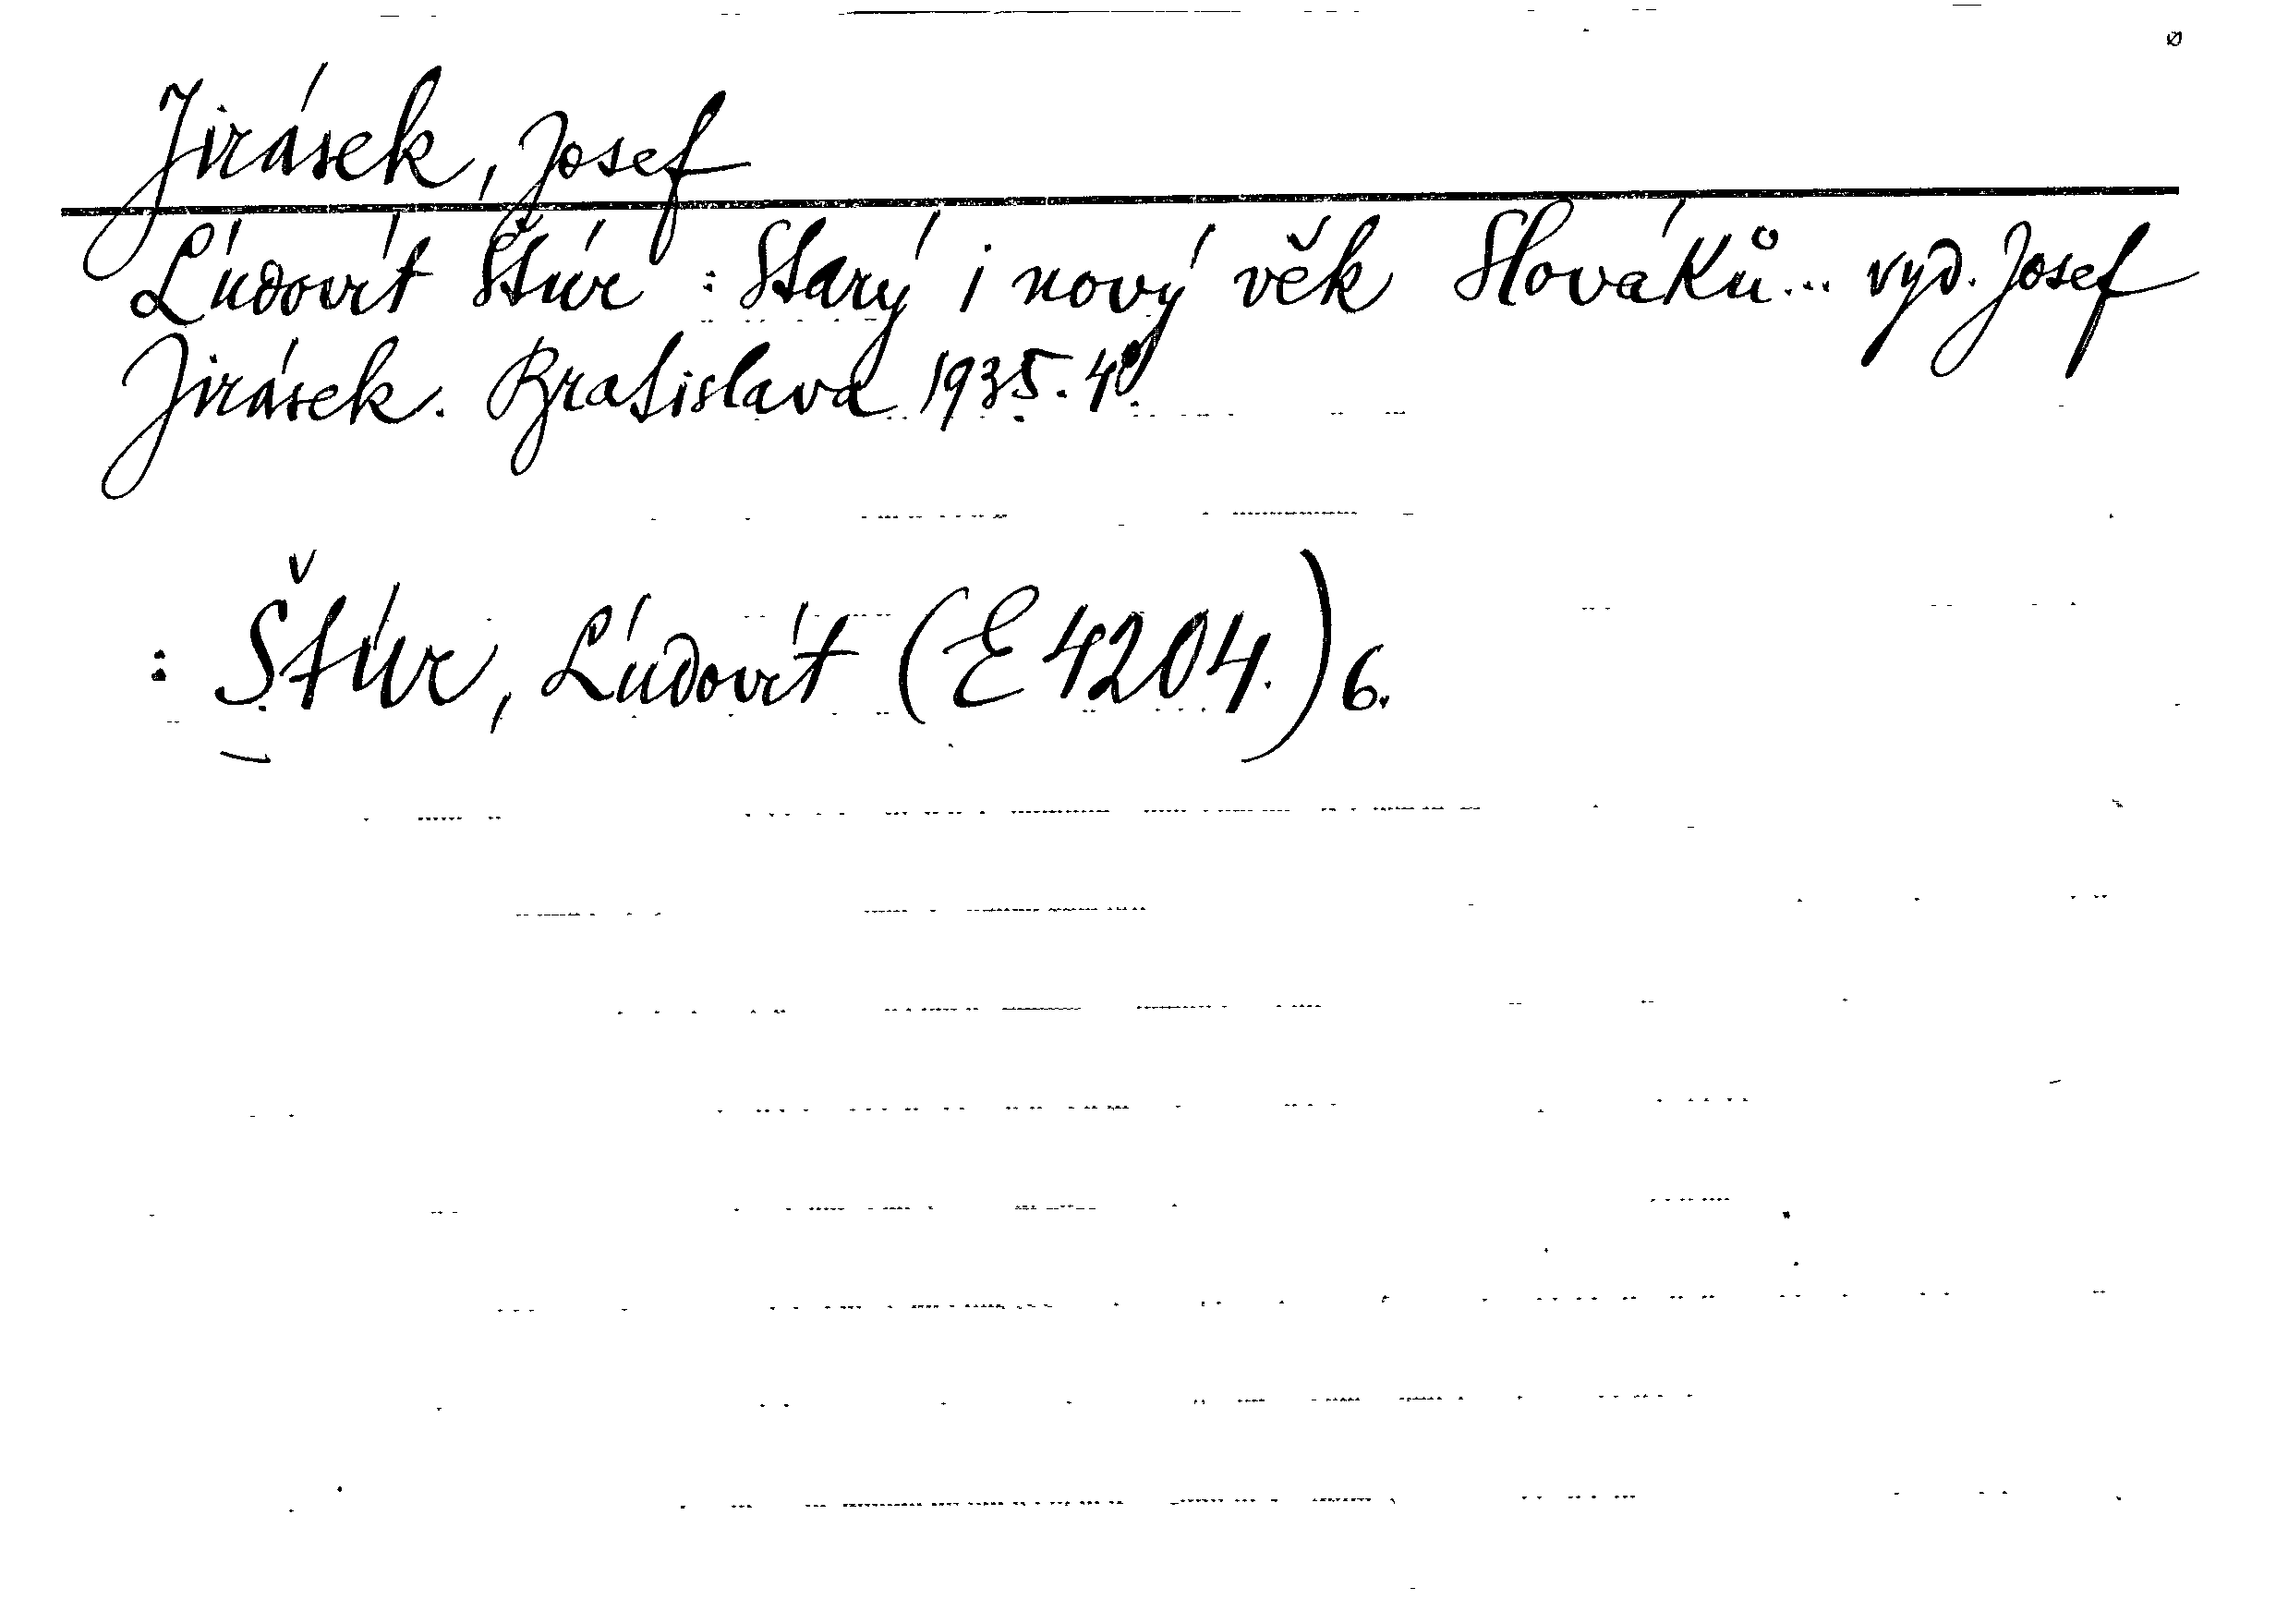 Jirásek, Josef
Ľudovít Štúr : Starý i nový věk Slováků... vyd. Josef
Jirásek. Bratislava 1935. 4°
: Štúr, Ľudovít (E 4204.) 6.